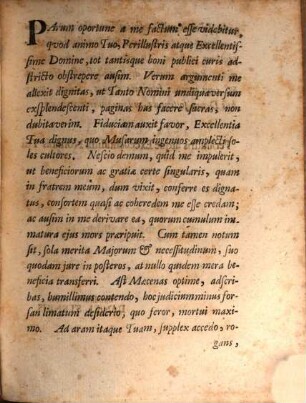 PArum oportune a me factum esse videbitur,
qvod animo Tuo, Perillustris atque Excellentis-
sime Domine, tot tantisque boni publici curis ad-
stricto obstrepere ausim. Verum argumenti me
allexit dignitas, ut Tanto Nomini undiqvaversum
exsplendescenti, paginas has facere sacras, non
dubitaverim. Fiduciam auxit favor, Excellentia
Tua dignus, quo Musarum ingenuos amplecti so-
les cultores. Nescio demum, quid me impulerit,
ut beneficiorum ac gratiæ certe singularis, quam
in fratrem meum, dum vixit, conferre es digna-
tus, consortem quasi ac coheredem me esse credam;
ac ausim in me derivare ea, quorum cumulum im-
matura ejus mors præripuit. Cum tamen notum
sit, sola merita Majorum & necessitudinum, suo
quodam jure in posteros, at nullo quidem mera be-
neficia transferri. Ast Mecenas optime, adscri-
bas, humillimus contendo, hoc judicium minus for-
san limatum desiderio, quo feror, mortui maxi-
mo. Ad aram itaque Tuam, supplex accedo, ro-
gans,